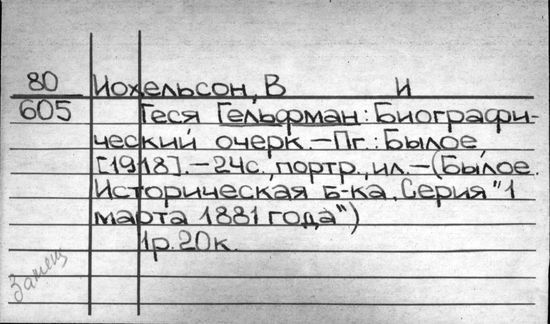 80 Иохельсон, В И
605 Геся Гельфман: Биографи-
ческий очерк.-Пг.: Былое,
[1918].-24с., портр., ил.-(Былое.
Историческая б-ка. Серия "1
марта 1881 года")
1р.20к.
Замещ